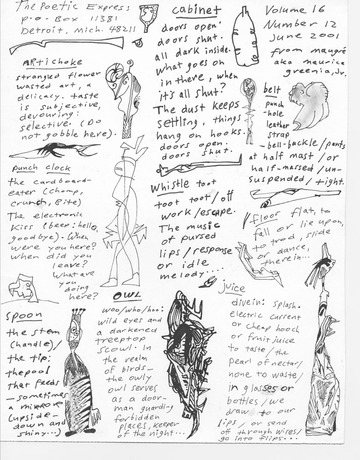 The Poetic Express
P.O. Box 11381
Detroit, Mich. 48211
ARTichoke
strangled flower
wasted art, a
delicacy. taste
is subjective,
devouring:
selective. (Do
not gobble here).
punch clock
the cardboard-
eater (chomp,
crunch, bite)
The electronic
kiss (beep: hello,
goodbye). When
were you here?
when did you
leave?
what are
you
doing
here?
spoon
the stem
(handle)/
the tip;
the pool
that feeds
– sometimes
a mirror
(upside-
down and
shiny...)
cabinet
doors open
doors shut.
all dark inside.
What goes on
in there, when
it's all shut?
The dust keeps
settling, things
hang on hooks.
doors open.
doors shut.
Whistle toot
toot toot/off
work/escape.
The music
of pursed
lips/response
or idle
melody...
OWL
woo/who/hoo:
wild eyes and
a darkened
treetop
scowl. In
the realm
of birds–
the owly
owl serves
as a door-
man guarding
forbidden
places, keeper
of the night...
Volume 16
Number 12
June 2001
from maugré
aka maurice
greenia, Jr.
belt
punch
hole
leather
strap
– belt-buckle/pants
at half mast/or
half-marsed/un-
suspended/tight.
floor flat to
fall or lie upon,
to trod, slide
or dance,
therein...
juice
dive in: splash.
electric current
or cheap hooch
or fruit juice
to taste/the
pearl of nectar/
none to waste/
in glasses or
bottles/we
draw to our
lips/or send
off through wires/
go into flips...